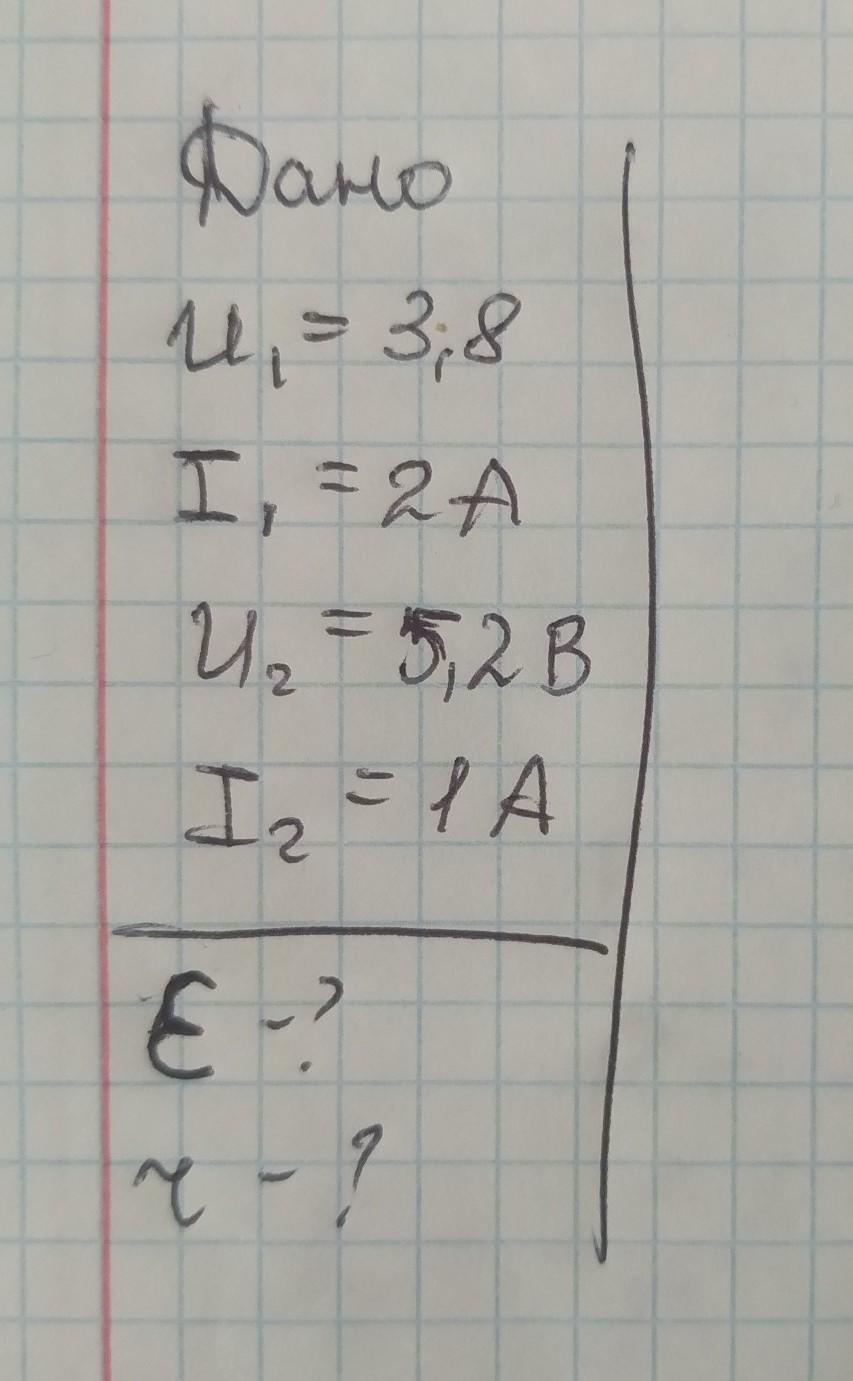 Дано
U₁ = 3,8
I₁ = 2 А
U₂ = 5,2 В
I₂ = 1 А
Ɛ - ?
r - ?